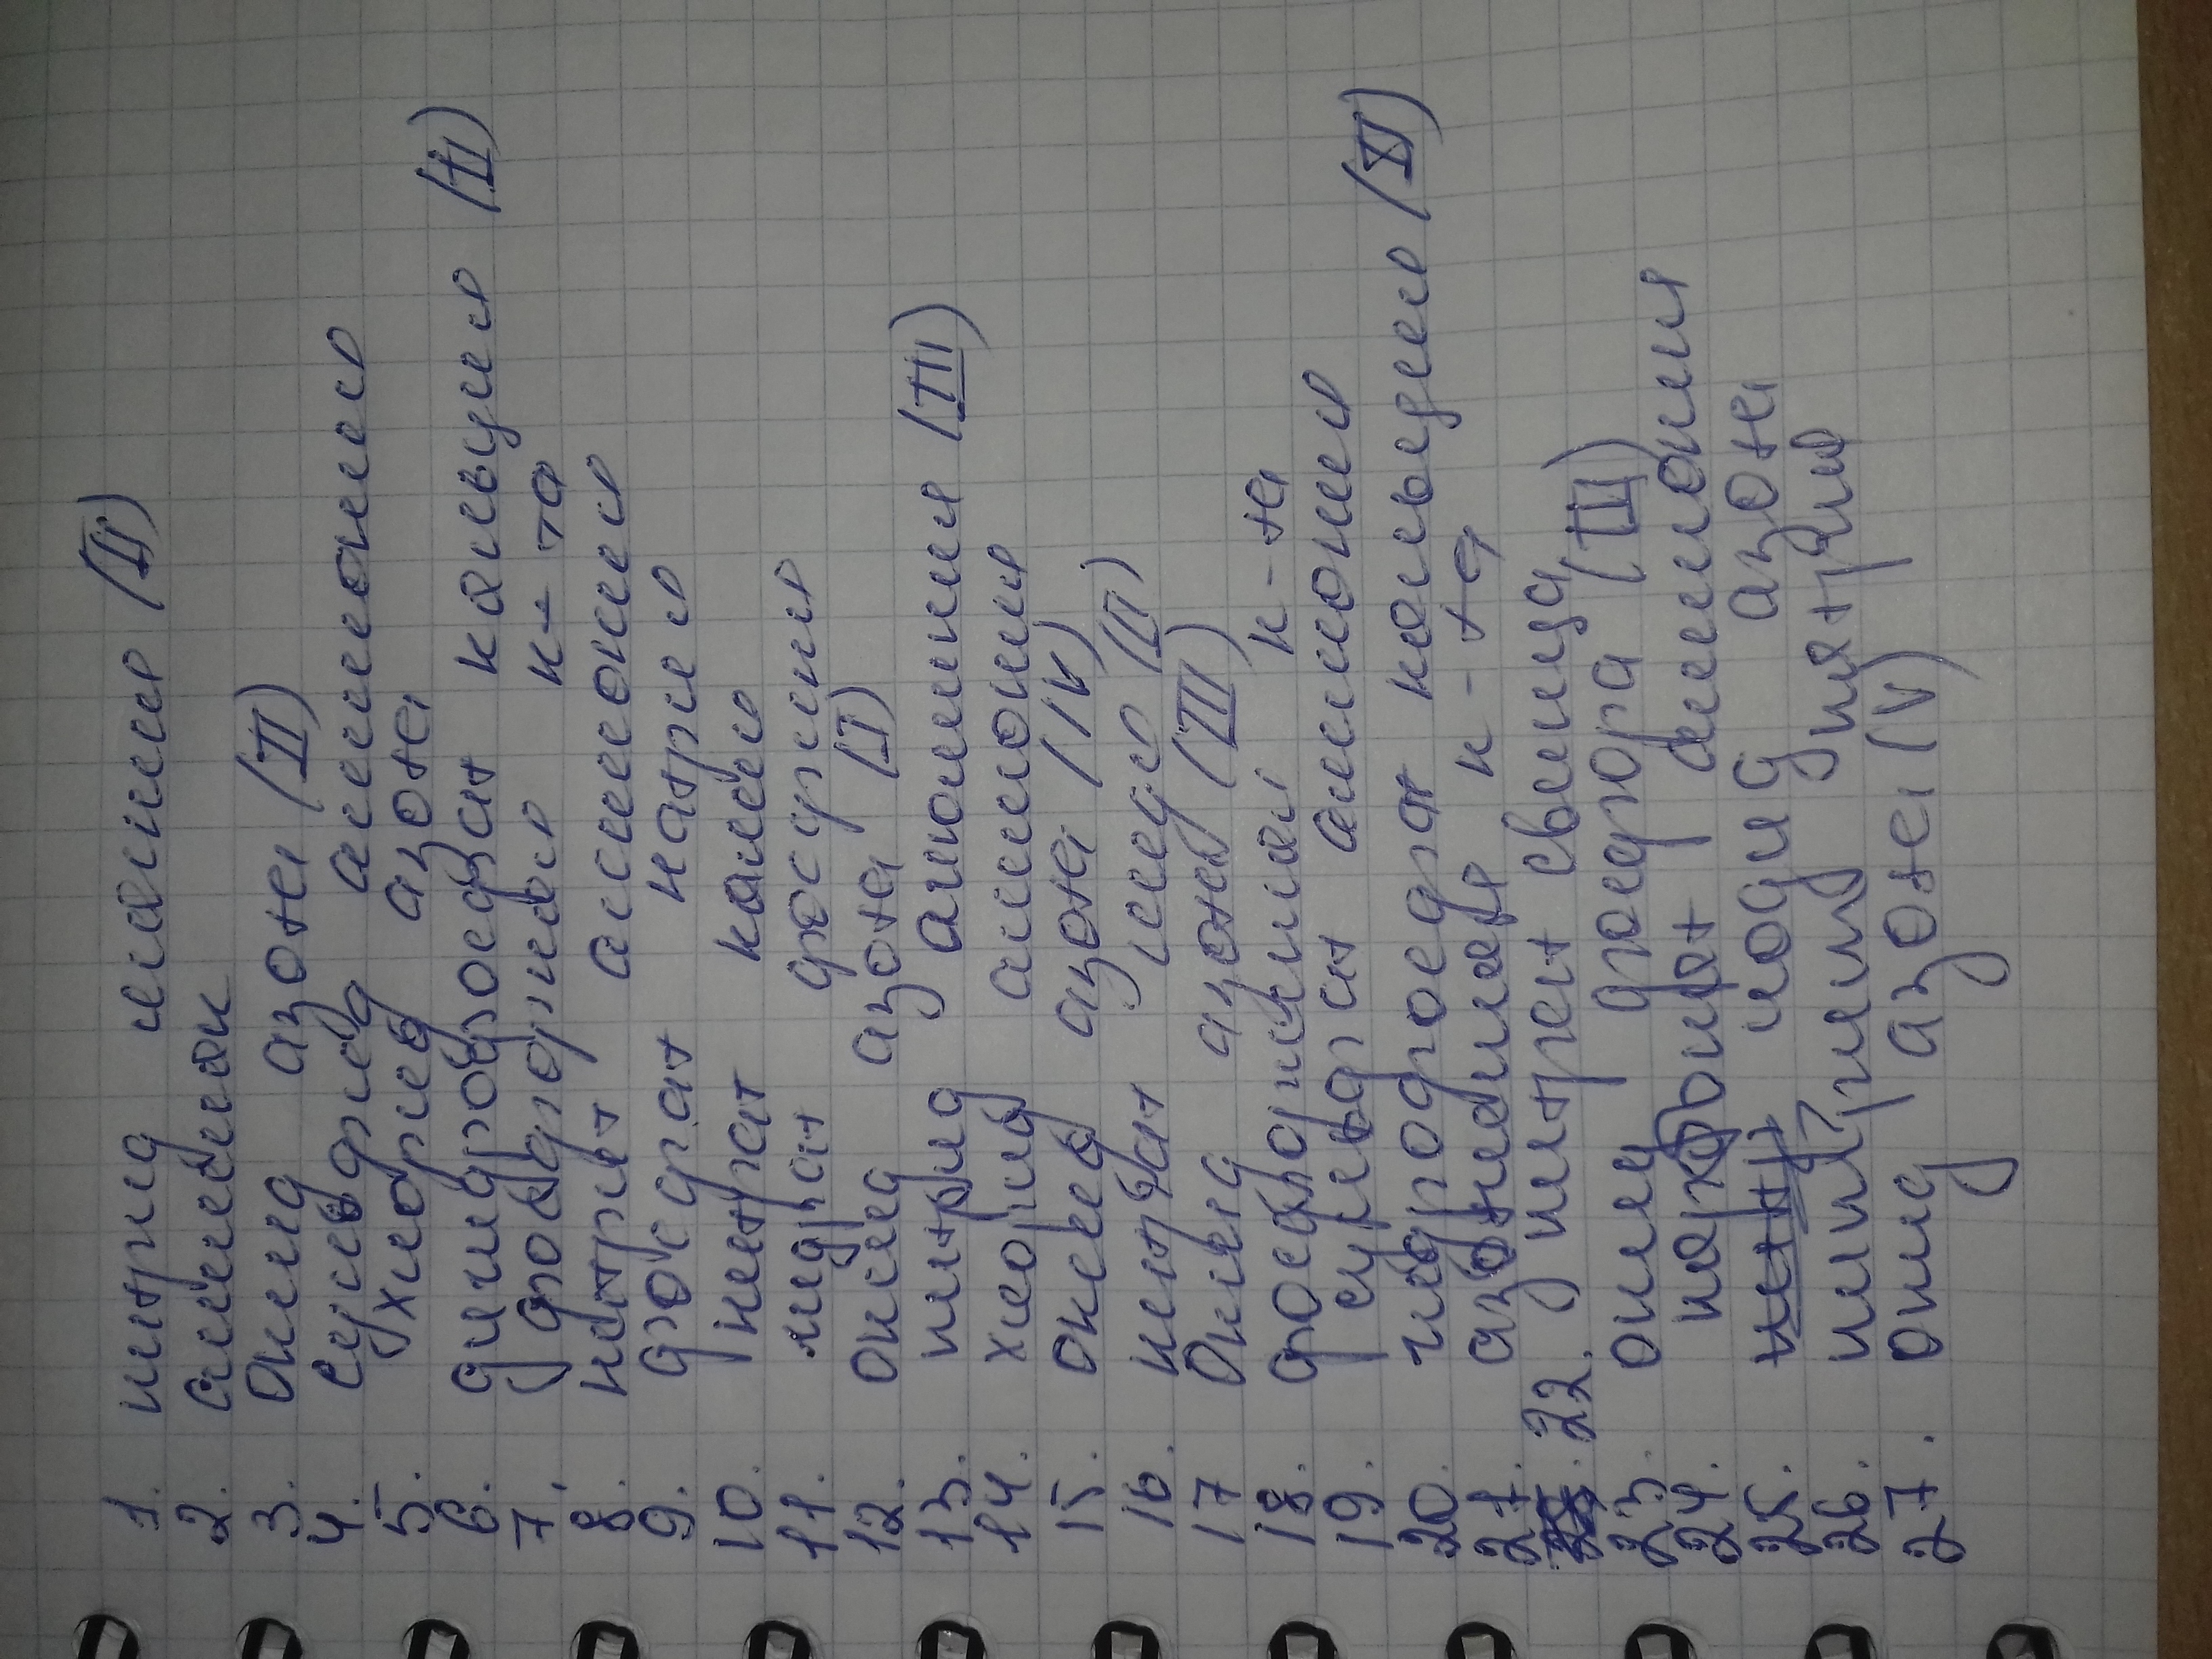 1. нитрид магния (II)
2. аммиак
3. Оксид азота (II)
4. сульфид аммония
5. хлорид азота
6. дигидрофосфат кальция (II)
7. фосфорная к-та
8. нитрит аммония
9. фосфат натрия
10. нитрат калия
11. фосфин
12. Оксид азота (I)
13. нитрид алюминия (III)
14. хлорид аммония
15. Оксид азота (IV)
16. нитрат меди (II)
17 Оксид азота (III)
18. фосфорная к-та
19. сульфат аммония
20. гидрофосфат кальция (II)
21. азотная к-та
22. нитрат свинца
23. оксид фосфора (III)
24. карбонат аммония
25. иодид азота
26. нитрид натрия
27. оксид азота (V)